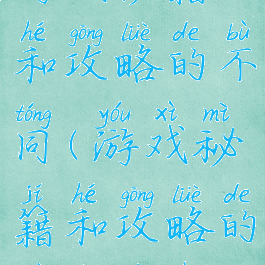 hé gōng lüè de bù
和攻略的不
tóng yóu xì mì
同(游戏秘
jí hé gōng lüè de
籍和攻略的